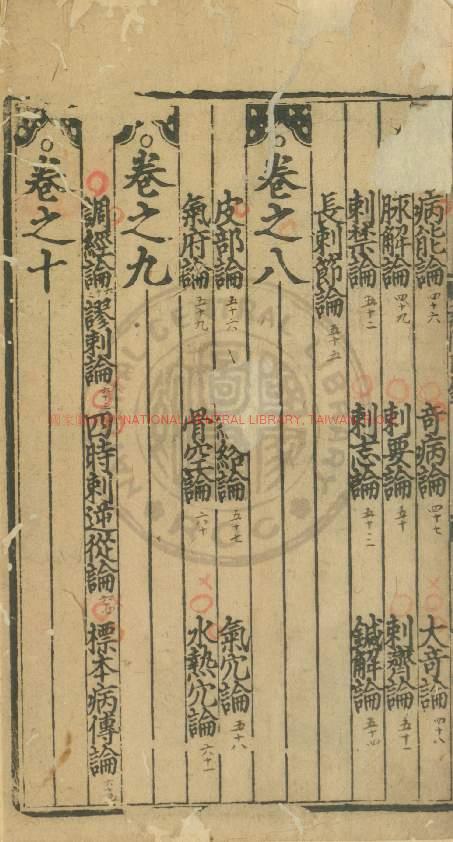 病能論 四十六 奇病論 四十七 大奇論 四十八
脉解論 四十九 刺要論 五十 刺齊論 五十一
刺禁論 五十二 刺志論 五十三 鍼解論 五十四
長刺節論 五十五
卷之八
皮部論 五十六 絡論 五十七 氣穴論 五十八
氣府論 五十九 骨空論 六十 水熱穴論 六十一
卷之九
調經論 謬刺論 四時刺逆從論 標本病傳論
卷之十
NATIONAL CENTRAL LIBRARY, TAIWAN